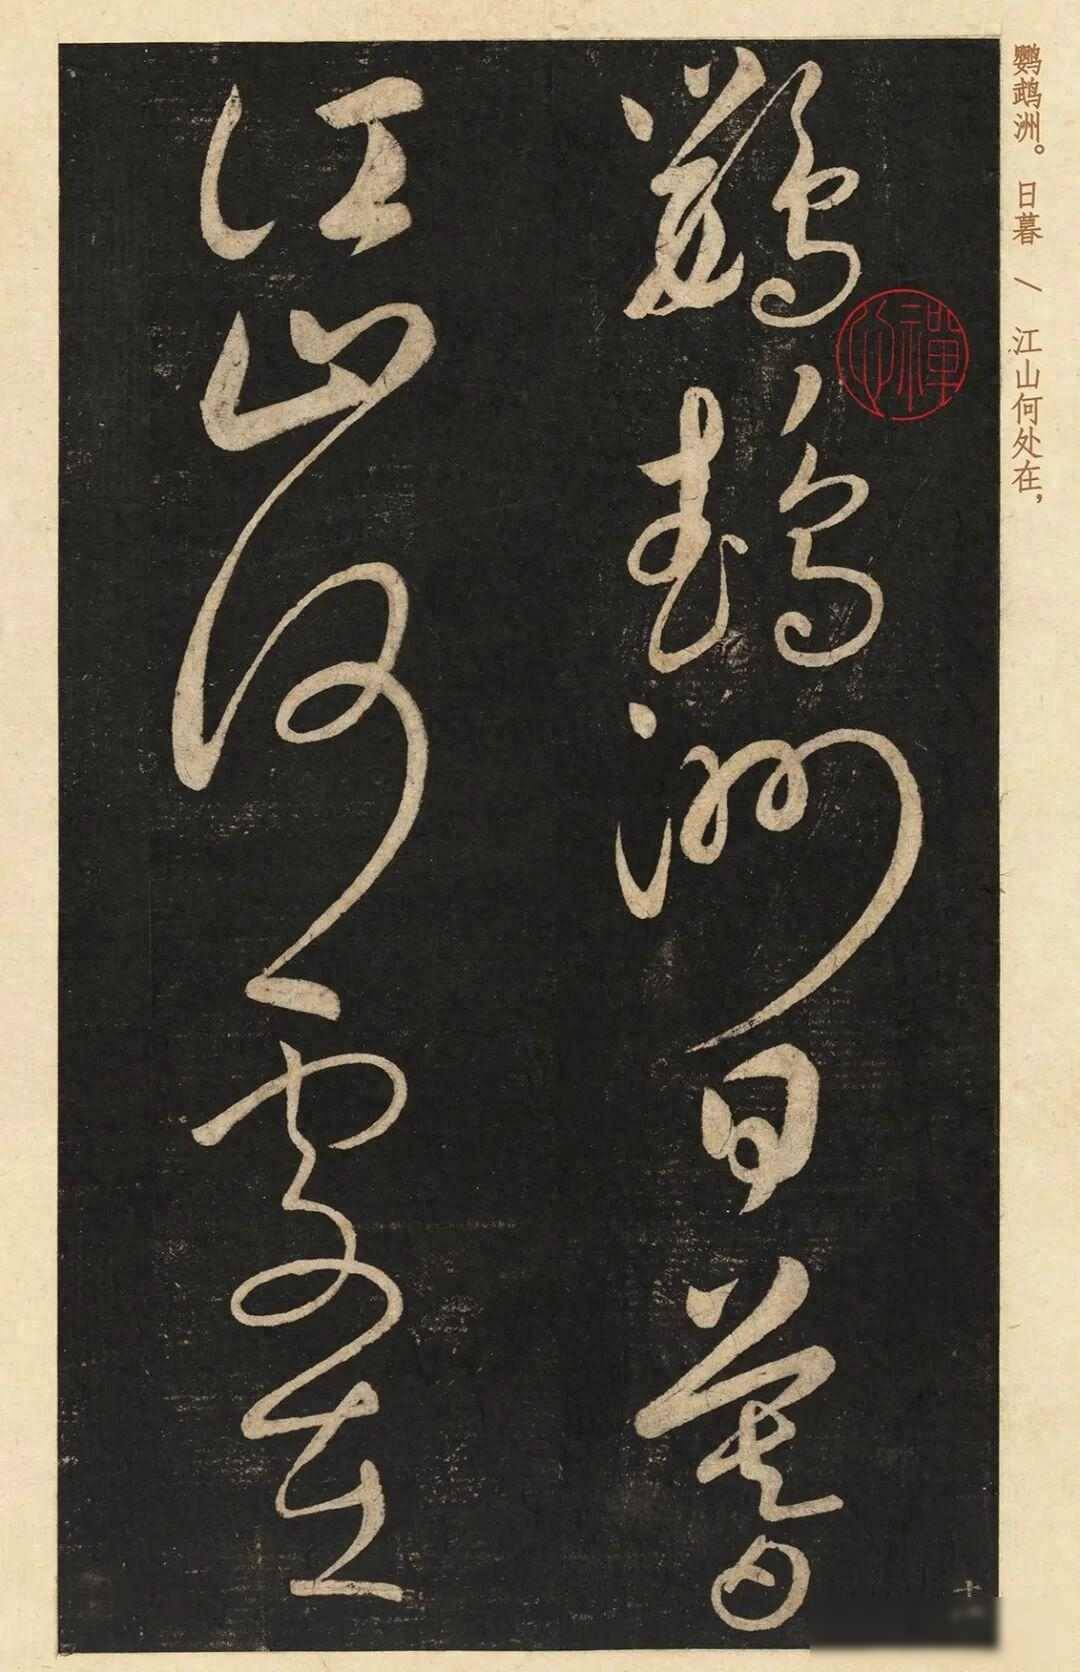 鸚鵡洲日暮
江山何處在
鹦鹉洲。日暮 \ 江山何处在，
禅
十